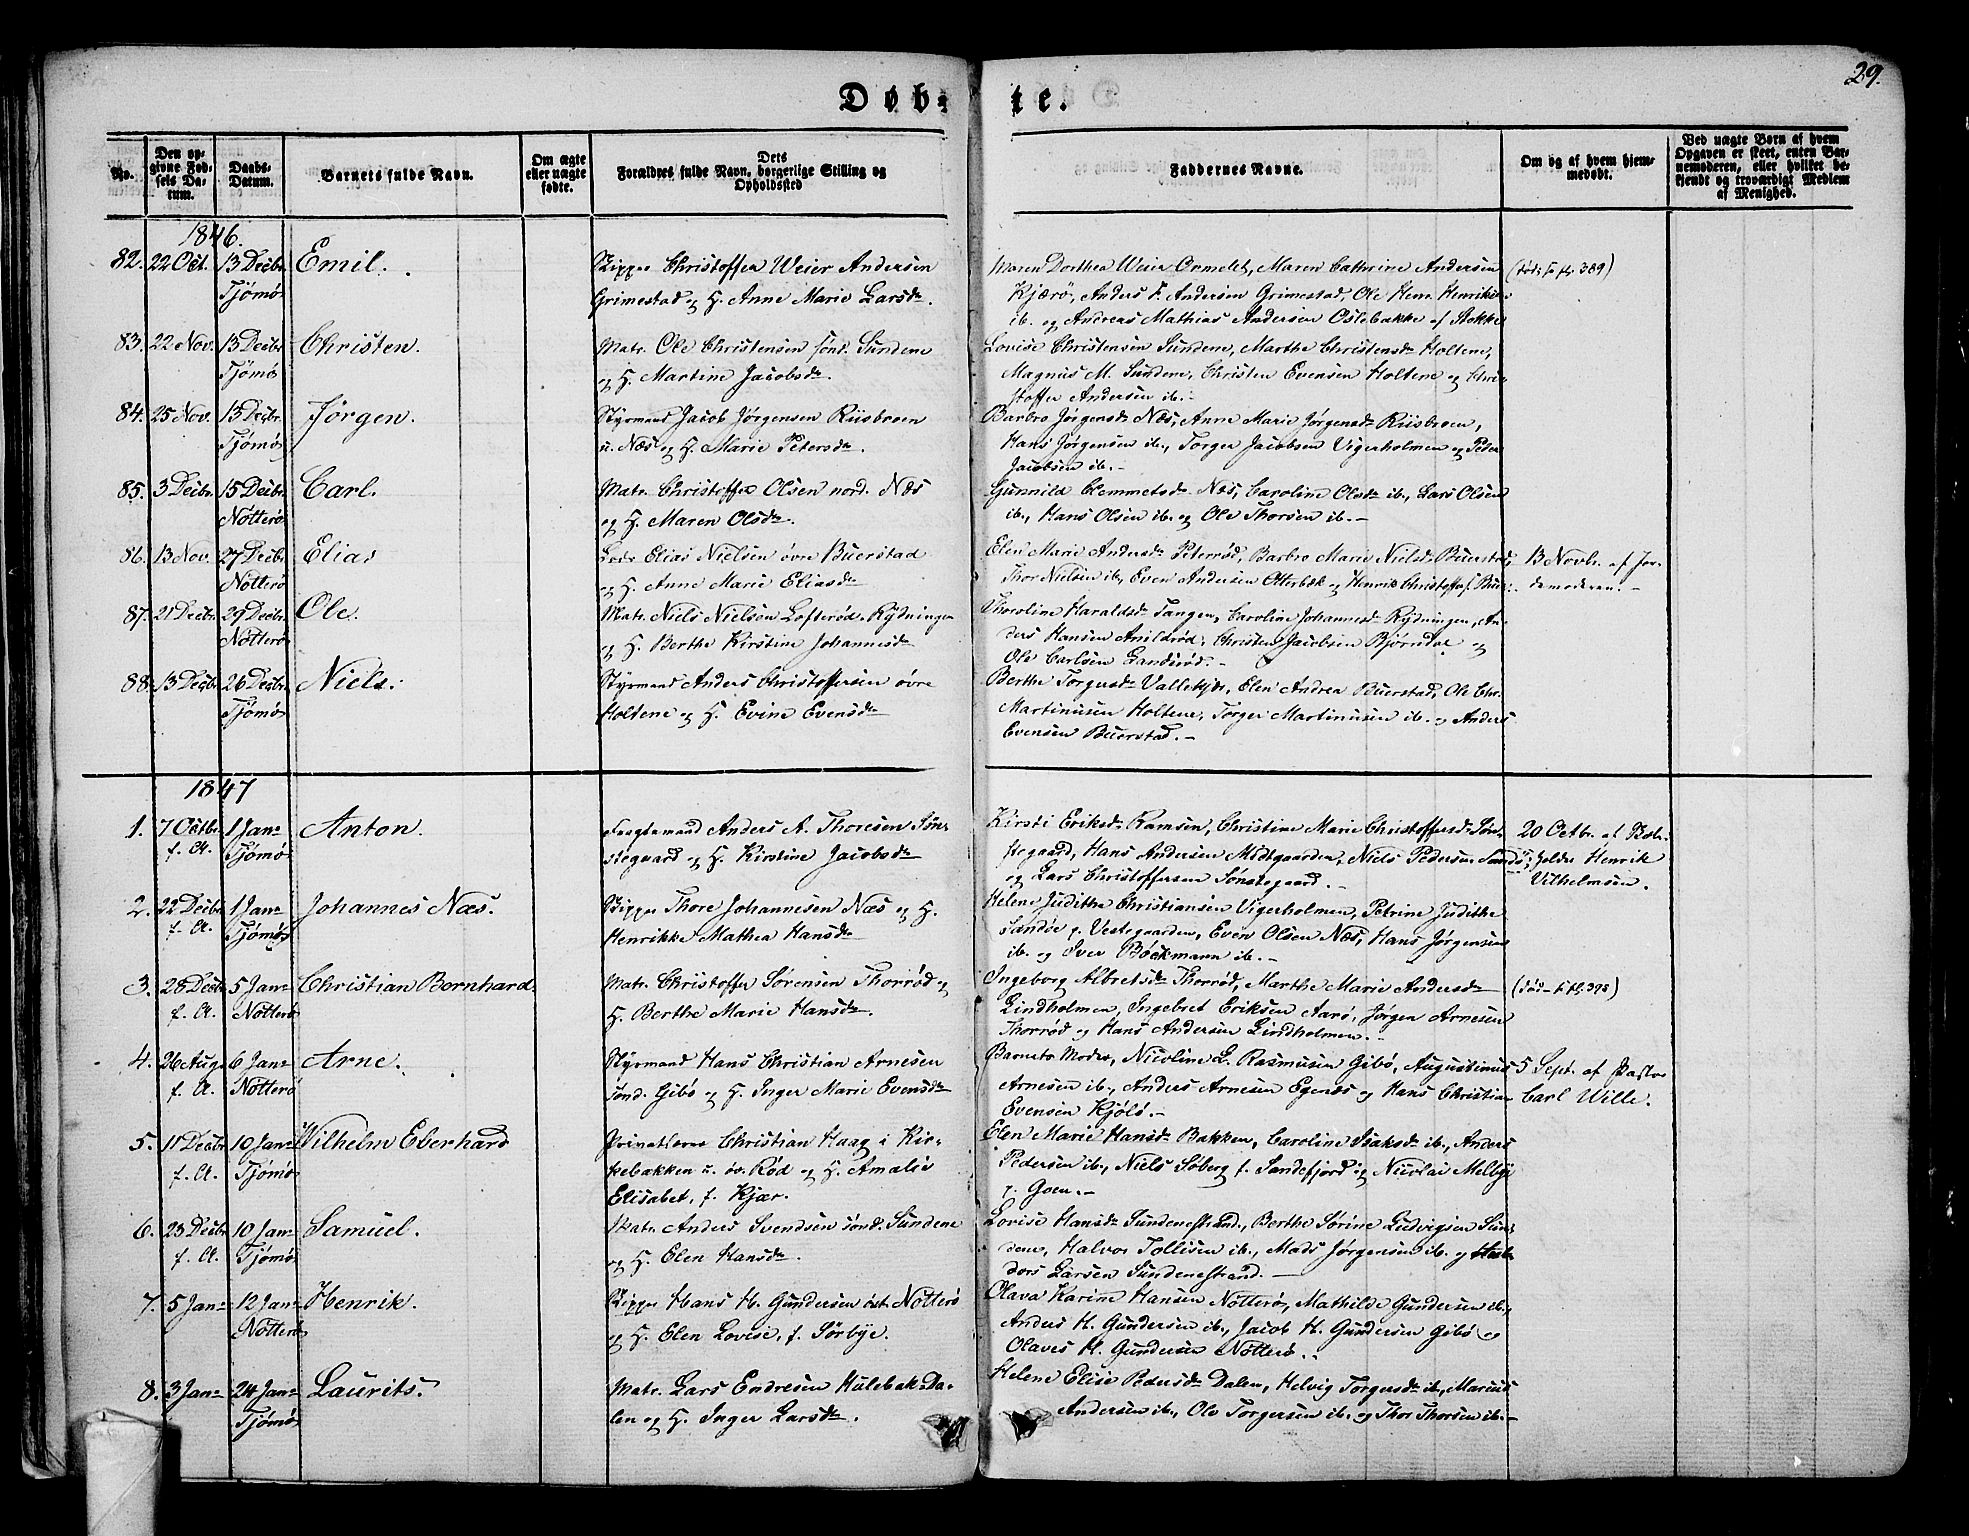 Døb-
te.
29.
No.
Den op-
givne Fød-
sels Da-
tum.
Daabs-
Datum.
Barnets fulde Navn.
Om ægte
eller uægte
fødte.
Dets
Forældres fulde Navn, borgerlige Stilling og
Opholdsted
Faddernes Navne.
Om og af hvem hjem-
medøbt.
Ved uægte Børn af hvem
Opgaven er skeet, enten Bar-
nemoderen, eller hvilket be-
kjendt og troværdigt Medlem
af Menighed.
1846.
82. 22 Oct. 13 Decbr. Emil.
Tjömö
Skipper Christoffer Weier Andersen
Grimestad og H. Anne Marie Larsdr.
Maren Dorthea Weier Ormelet, Maren Cathrine Andersen
Kjærö, Anders F. Andersen Grimestad, Ole Henr. Henriks:
ib. og Andreas Mathias Andersen Oslebakke af Stokke
(död; 389)
83. 22 Nov. 13 Decbr. Christen.
Tjömö
Matr. Ole Christensen sönd. Sundene
og H. Martine Jacobsdr.
Lovise Christensen Sundene, Marthe Christensdr. Holtene,
Magnus M. Sundene, Christen Evensen Holtene og Chri-
stoffer Andersen ib.-
84. 25 Nov. 13 Decbr. Jörgen.
Tjömö
Styrmand Jacob Jörgensen Riisbroen
u. Næs og H. Marie Petersdr.
Barbro Jörgensdr. Næs, Anne Marie Jörgensdr. Riisbroen,
Hans Jörgensen ib., Torger Jacobsen Vigerholmen og Peder
Jacobsen ib.-
85. 3 Decbr. 15 Decbr. Carl.
Nötterö
Matr. Christoffer Olsen nord. Næs
og H. Maren Olsdr.
Gunnild Clemmetsdr. Næs, Caroline Olsdr. ib., Lars Olsen
ib., Hans Olsen ib. og Ole Thorsen ib.-
86. 13 Nov. 27 Decbr. Elias
Nötterö
Elias Nielsen övre Buerstad
og H. Anne Marie Eliasdr.
Elen Marie Andersdr. Peterröd, Barbro Marie Nielsd. Buerstad,
Thor Nielsen ib., Even Andersen Otterbæk og Henrik Christoffers. Buer-
13 Novbr. af Jor-
demoderen.-
87. 21 Decbr. 29 Decbr. Ole.
Nötterö
Matr. Niels Nielsen Lofteröd-Rydningen
og H. Berthe Kirstine Johannesdr.
Thoroline Haraldsdr. Tangen, Caroline Johannesdr. Rydningen, An-
ders Hansen Anildröd, Christen Jacobsen Bjørndal og
Ole Carlsen Gandsröd.-
88. 13 Decbr. 26 Decbr. Niels.
Tjömö
Styrmand Anders Christoffersen övre
Holtene og H. Evine Evensdr.
Berthe Torgersdr. Vallekjær, Elen Andrea Buerstad, Ole Chr.
Martinusen Holtene, Torger Martinusen ib. og Anders
Evensen Buerstad.-
1847
1. 7 Octbr. 1 Jan. Anton.
f. A. Tjömö
Fragtemand Anders A. Thoresen Søn-
stegaard og H. Kirstine Jacobsdr.
Kirsti Eriksdr. Ramsen, Christine Marie Christoffersdr. Søn-
stegaard, Hans Andersen Midtgaarden, Niels Pedersen Sandö,
og Lars Christoffersen Sønstegaard.-
20 Octbr. af
Henrik
Vilhelmsen.
2. 22 Decbr. 1 Jan. Johannes Næs.
f. A. Tjömö
Skipper Thore Johannesen Næs og H.
Henrikke Mathea Hansdr.
Helene Judithe Christiansen Vigerholmen, Petrine Judithe
Sandöe p. Vestegaarden, Even Olsen Næs, Hans Jörgensen
ib. og Iver Böckmann ib.-
3. 28 Decbr. 5 Jan. Christian Bernhard.
f. A. Nötterö
Matr. Christoffer Sörensen Thorröd og
H. Berthe Marie Hansdr.
Ingeborg Albretsdr. Thorröd, Marthe Marie Andersdr.
Lindholmen, Ingebret Eriksen Aarö, Jörgen Arnesen
Thorröd og Hans Andersen Lindholmen.-
(död- 398)
4. 26 Aug. 6 Jan. Arne.
f. A. Nötterö
Styrmand Hans Christian Arnesen
sönd. Gibö og H. Inger Marie Evensdr.
Barnets Moder, Nicoline L. Rasmusen Gibö, Augustinus
Arnesen ib., Anders Arnesen Egenæs og Hans Christian
Evensen Kjölö.-
5 Sept. af Pastor
Carl Wille.
5. 11 Decbr. 10 Jan. Wilhelm Eberhard
f. A. Tjömö
Privatlærer Christian Haag i Kir-
kebakken u. öv. Röd og H. Amalie
Elisabet, f. Kjær.
Elen Marie Hansdr. Bakken, Caroline Isaksdr. ib., Anders
Pedersen ib., Niels Söberg f. Sandefjord og Nicolai Melbye
p. Goen.-
6. 23 Decbr. 10 Jan. Samuel.
f. A. Tjömö
Matr. Anders Svendsen sönd. Sundene
og H. Elen Hansdr.
Lovise Hansdr. Sundenestrand, Berthe Sörine Ludvigsen Sun-
dene, Halvor Tollisen ib., Mads Jörgensen ib. og
Larsen Sundenestrand.-
7. 5 Jan. 12 Jan. Henrik.
Nötterö
Skipper Hans H. Gundersen öst. Nötterö
og H. Elen Lovise, f. Sörbye.
Olava Karine Hansen Nötterö, Mathilde Gundersen ib.,
Anders H. Gundersen ib., Jacob H. Gundersen Gibö og
Olaves H. Gundersen Nötterö.
8. 3 Jan. 24 Jan. Laurits.
Tjömö
Matr. Lars Endresen Hulebak-Da-
len og H. Inger Larsdr.
Helene Elise Pedersdr. Dalen, Helvig Torgersdr. ib., Marius
Andersen ib., Ole Torgersen ib. og Thor Thorsen ib.-